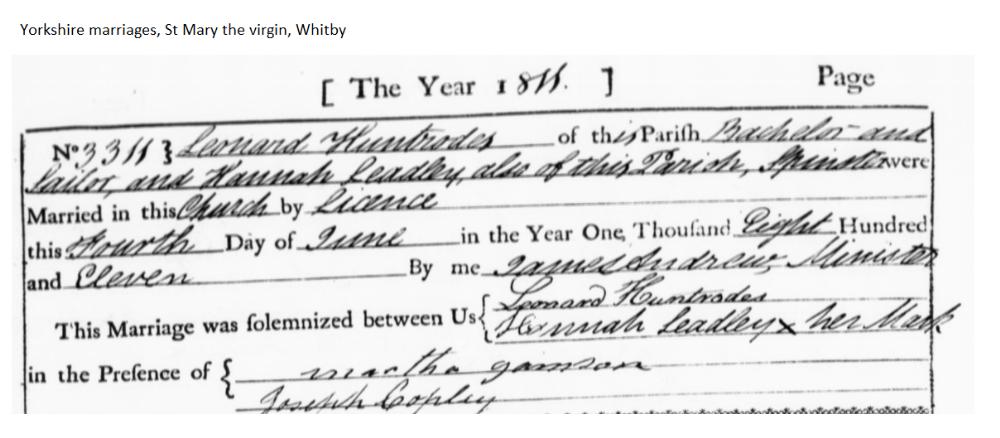 Yorkshire marriages, St Mary the virgin, Whitby
[ The Year 1811. ] Page
No 3311 } Leonard Huntrodes of this Parish Bachelor and
Sailor, and Hannah Leadley, also of this Parish, Spinster were
Married in this Church by Licence
this Fourth Day of June in the Year One Thousand Eight Hundred
and Eleven By me James Andrew, Minister
This Marriage was solemnized between Us { Leonard Huntrodes
Hannah Leadley x her Mark
in the Presence of { martha
Joseph Copley